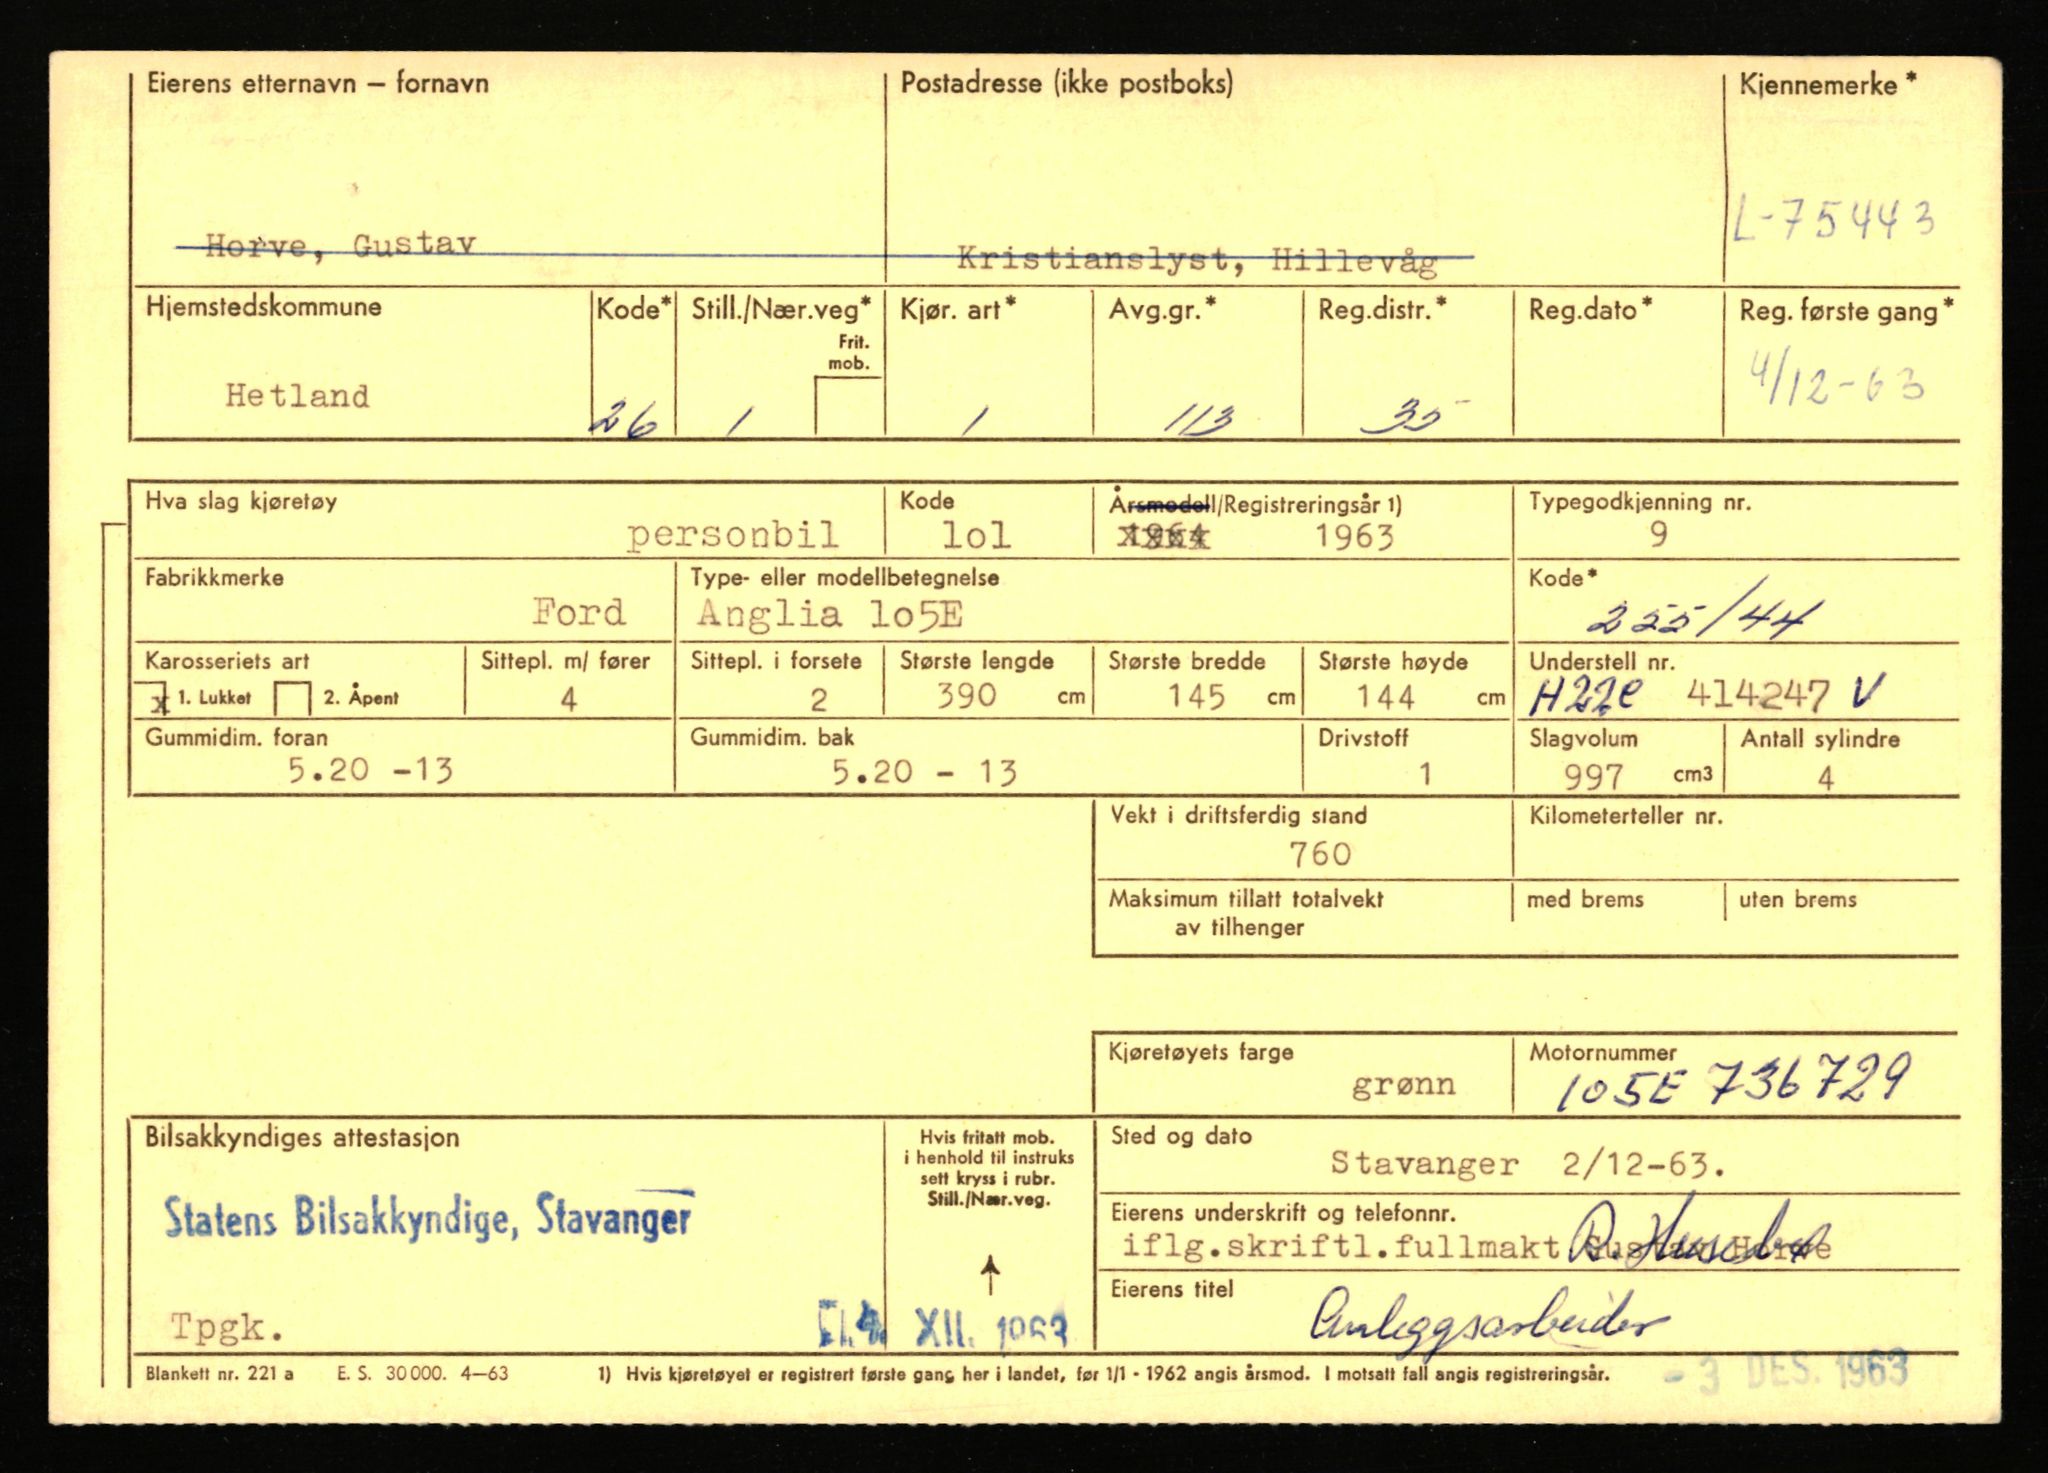 Eierens etternavn – fornavn
Postadresse (ikke postboks)
Kjennemerke*
L-75443
Horve, Gustav
Kristianslyst, Hillevåg
Hjemstedskommune
Kode*
Still./Nær.veg*
Frit.
mob.
Kjør. art*
Avg.gr.*
Reg.distr.*
Reg.dato*
Reg. første gang*
Hetland
26
1
1
113
35
4/12-63
Hva slag kjøretøy
Kode
Årsmodell/Registreringsår 1)
Typegodkjenning nr.
personbil
lol
1964
1963
9
Fabrikkmerke
Type- eller modellbetegnelse
Kode*
Ford
Anglia lo5E
255/44
Karosseriets art
Sittepl. m/ fører
Sittepl. i forsete
Største lengde
Største bredde
Største høyde
Understell nr.
x 1. Lukket
2. Åpent
4
2
390 cm
145 cm
144 cm
H22C 414247 V
Gummidim. foran
Gummidim. bak
Drivstoff
Slagvolum
Antall sylindre
5.20 -13
5.20 - 13
1
997 cm3
4
Vekt i driftsferdig stand
Kilometerteller nr.
760
Maksimum tillatt totalvekt
av tilhenger
med brems
uten brems
Kjøretøyets farge
Motornummer
grønn
105E 736729
Bilsakkyndiges attestasjon
Hvis fritatt mob.
i henhold til instruks
sett kryss i rubr.
Still./Nær.veg.
Sted og dato
Stavanger 2/12-63.
Statens Bilsakkyndige, Stavanger
Eierens underskrift og telefonnr.
iflg.skriftl.fullmakt Gustav Horve
Eierens titel
Anleggsarbeider
Tpgk.
XII. 1963
Blankett nr. 221 a E. S. 30 000. 4–63
1) Hvis kjøretøyet er registrert første gang her i landet, før 1/1 - 1962 angis årsmod. I motsatt fall angis registreringsår.
- 3 DES. 1963